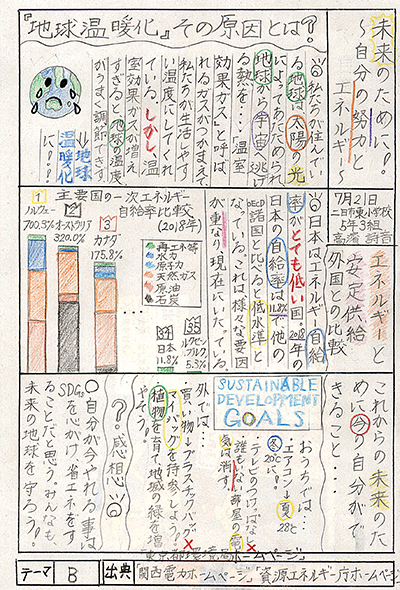 未来のために!
〜自分の努力と
エネルギー〜
『地球温暖化』その原因とは?
◎私たちが住んでい
る地球は太陽の光
によってあたためられ
地球から宇宙へ逃げ
る熱を…温室
効果ガスと呼ば
れるガスがつかまえて
私たちが生活しやす
い温度にしてくれ
ている。しかし、温
室効果ガスが増え
すぎると地球の温度
がうまく調節できず
に!!
地球
温暖化
7月21日
二日市東小学校
5年3組
エネルギーと
安定供給
外国との比較
◎日本はエネルギー自給
率がとても低い国。2018年の
日本の自給率は11.8%で他の
OECD諸国と比べると低水準と
なっている。これは様々な要因
が重なり現在にいたっている。
主要国の一次エネルギー
自給率比較
(2018年)
1
ノルウェー
700.3%
2
オーストラリア
320.0%
3
カナダ
175.8%
再エネ等
水力
原子力
天然ガス
原油
石炭
34
日本
11.8%
35
ルクセンブルク
5.3%
これからの未来のた
めに今の自分がで
きること…
SUSTAINABLE
DEVELOPMENT
GOALS
おうちでは…
エアコン→夏28℃
冬20℃に!
テレビのつけっぱなし
誰もいない部屋の電
気は消す。
外では…
買い物→プラスチック
マイバッグを持参しよう?
植物を育て地域の緑を増
やそう!
?感想
◎自分が今やれる事は
SDGsを心がけ、省エネをす
ことだと思う。みんなも
未来の地球を守ろう!
東京都環境局ホームページ
テーマ
B
出典
「関西電力ホームページ」「資源エネルギー庁ホームページ